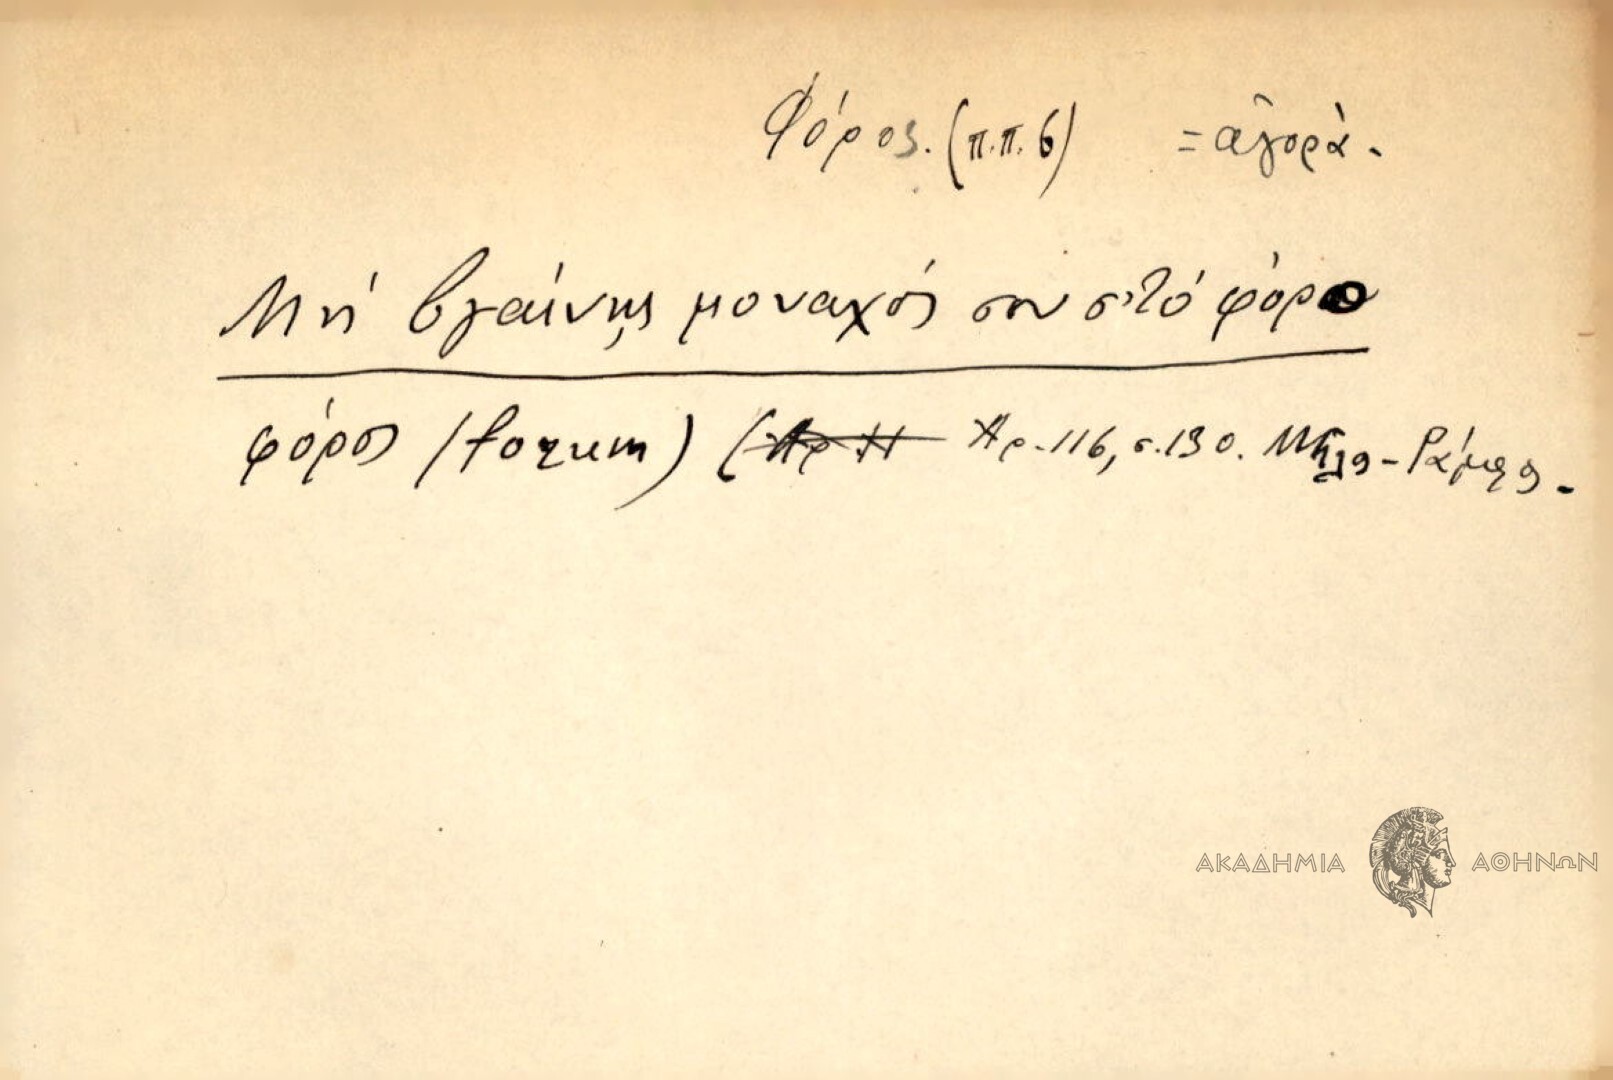 Φόρος. (π.π. 6) = ἀγορὰ.
Μή βγαίνῃς μοναχός σου σ'τό φόρο
φόρος (forum) ( Αρ. 116, σ. 130.
ΑΚΑΔΗΜΙΑ ΑΘΗΝΩΝ